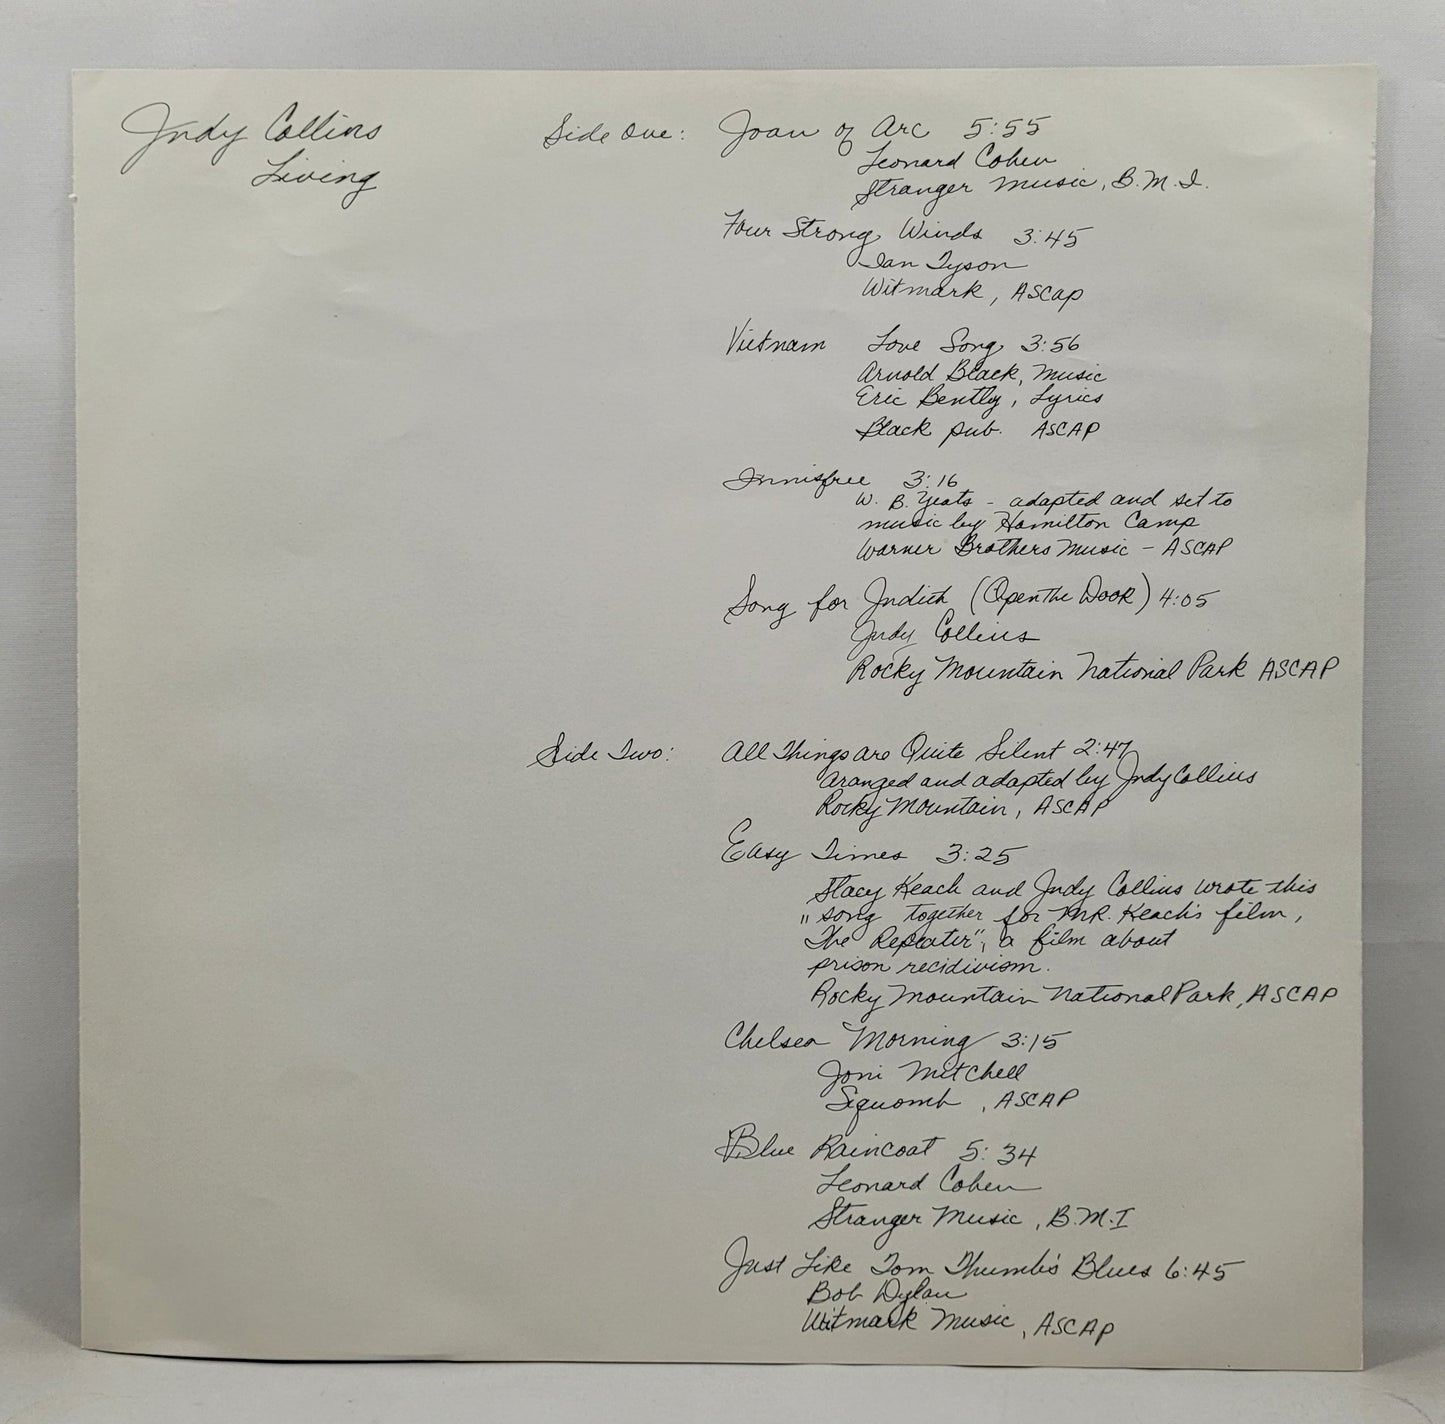 Judy Collins
Living
Side One:
Joan of Arc 5:55
Leonard Cohen
Stranger Music, B.M.I.
Four Strong Winds 3:45
Ian Tyson
Witmark, ASCAP
Vietnam Love Song 3:56
Arnold Black, Music
Eric Bently, Lyrics
Black pub. ASCAP
Innisfree 3:16
W. B. Yeats - adapted and set to
music by Hamilton Camp
Warner Brothers Music - ASCAP
Song for Judith (Open the Door) 4:05
Judy Collins
Rocky Mountain National Park ASCAP
Side Two:
All Things are Quite Silent 2:47
aranged and adapted by Judy Collins
Rocky Mountain, ASCAP
Easy Times 3:25
Stacy Keach and Judy Collins wrote this
" song together for MR. Keach's film,
The Repeater", a film about
prison recidivism.
Rocky Mountain National Park, ASCAP
Chelsea Morning 3:15
Joni Mitchell
Siquomb, ASCAP
Blue Raincoat 5:34
Leonard Cohen
Stranger Music, B.M.I
Just Like Tom Thumb's Blues 6:45
Bob Dylan
Witmark Music, ASCAP